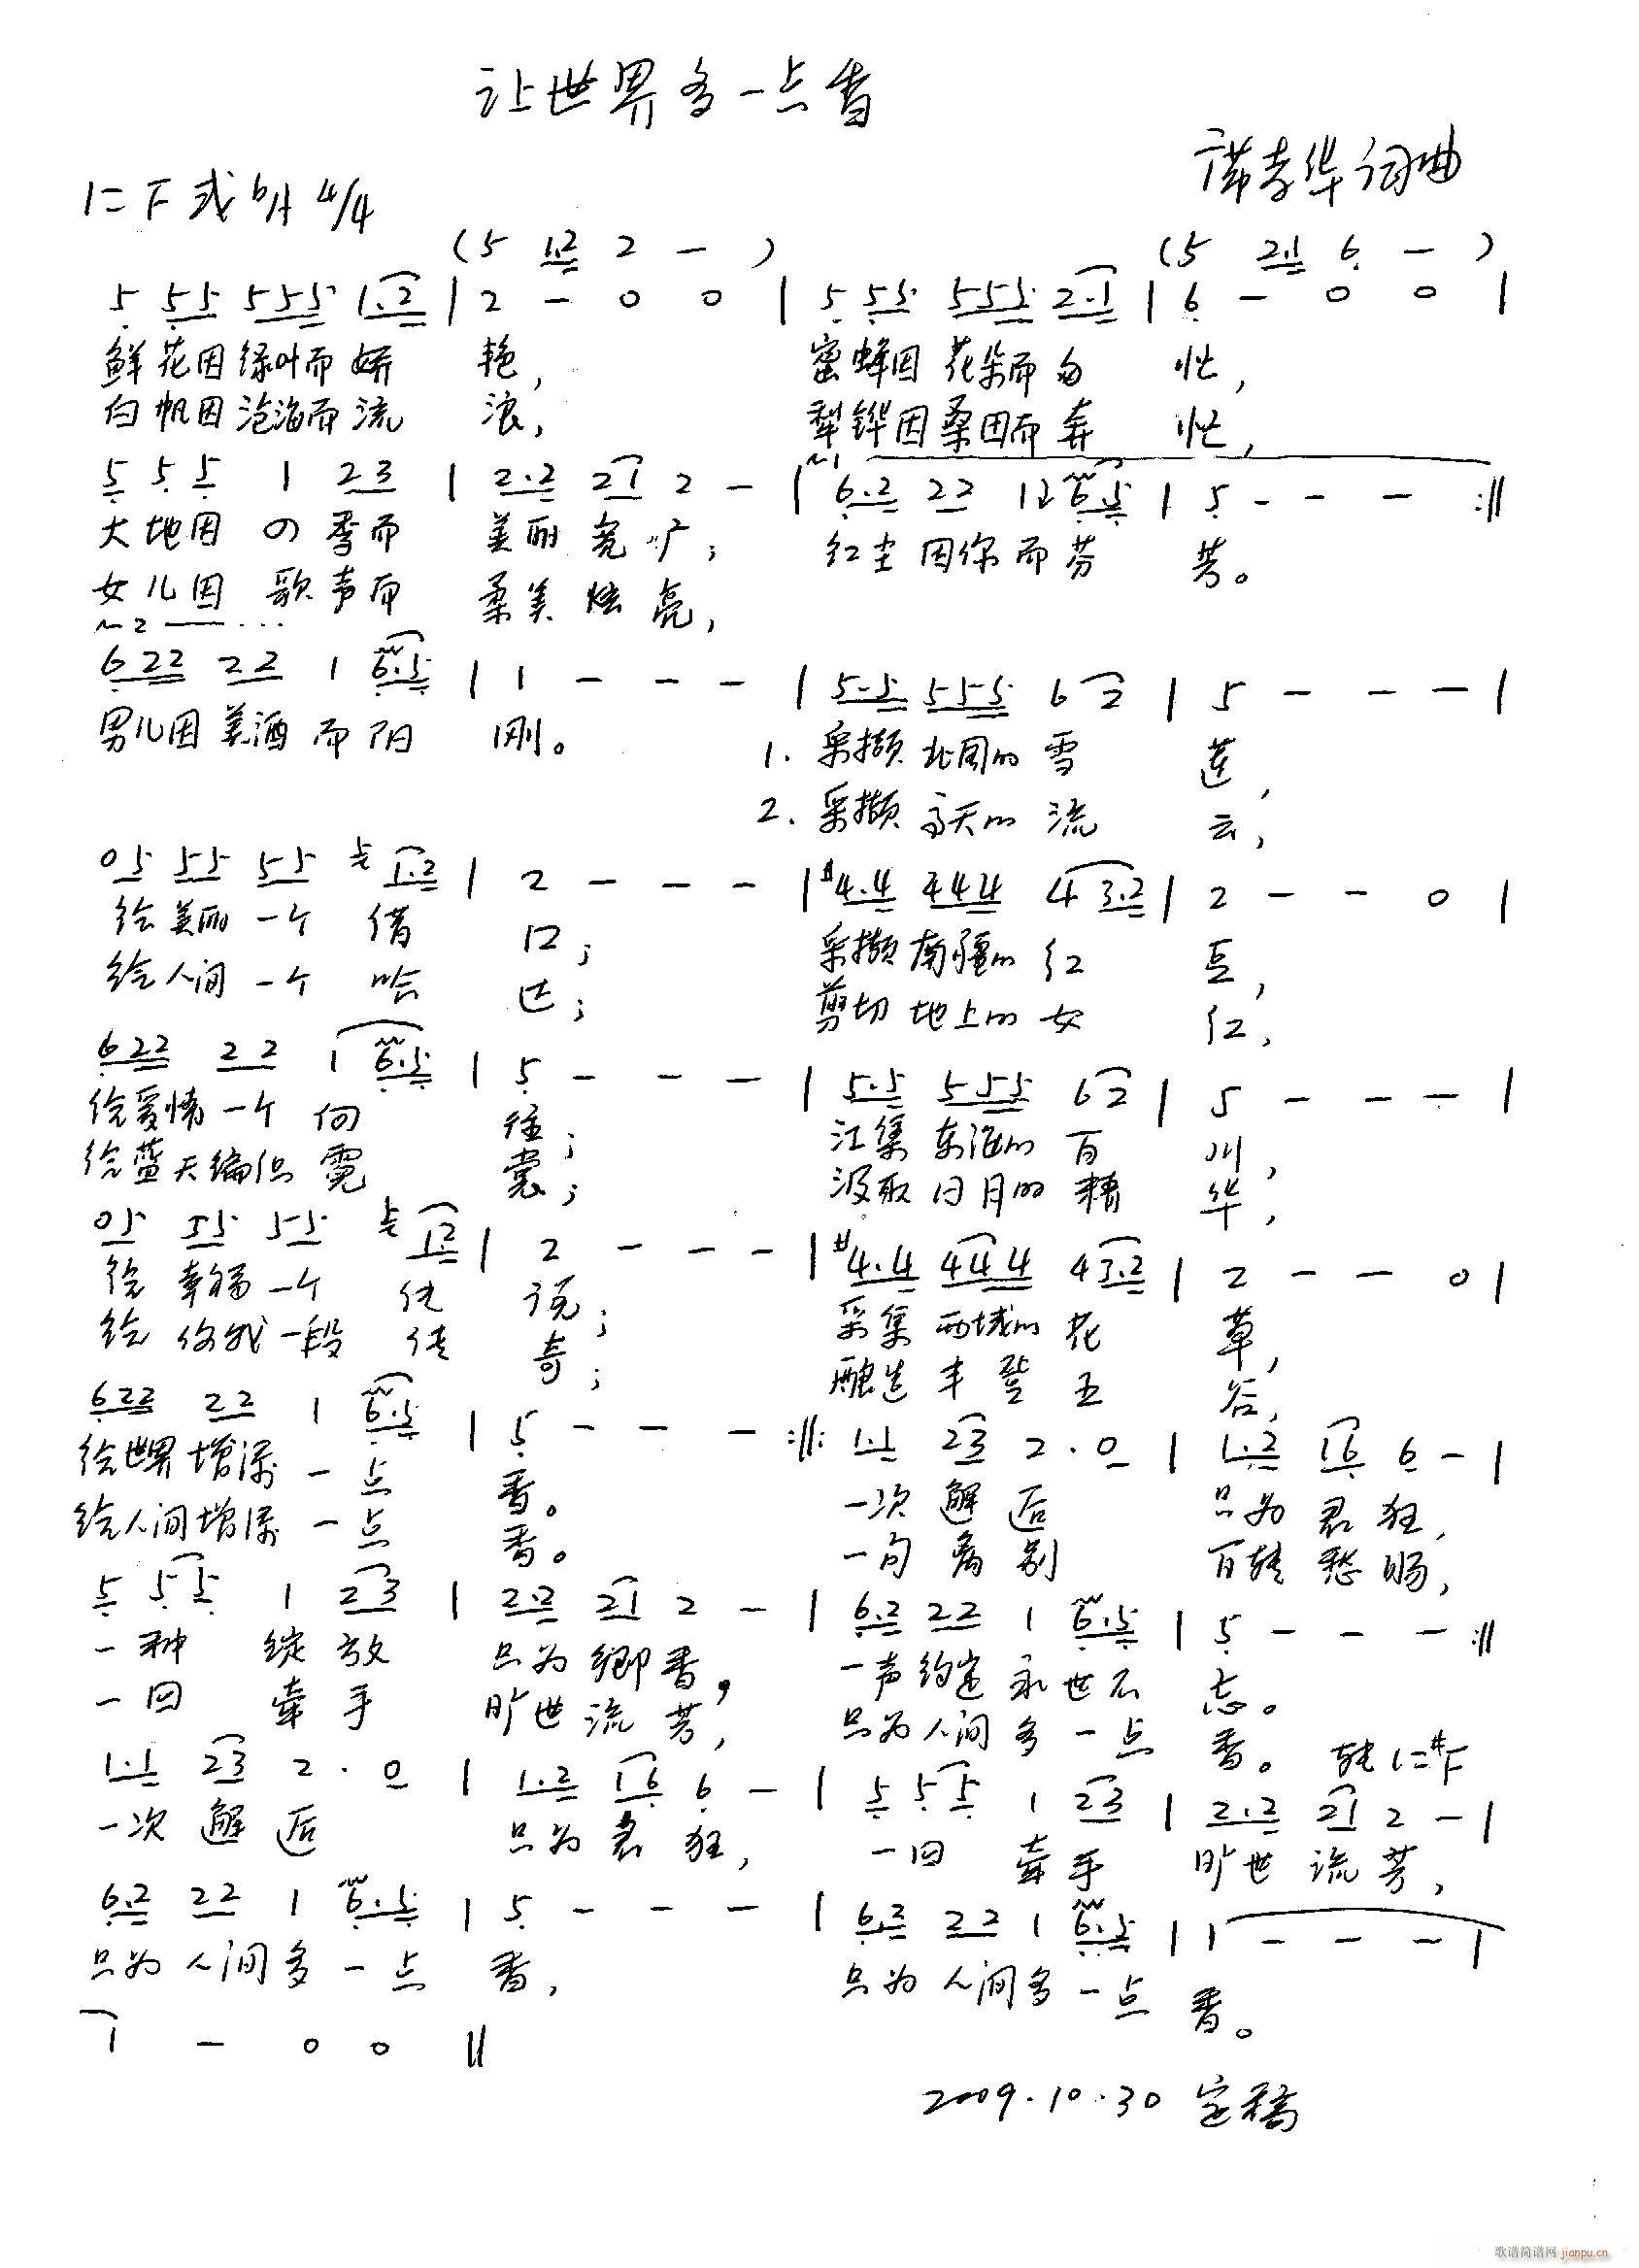 让世界多一点香
孝华词曲
1=F或bA 4/4
(5 12 2 - ) (5 21 6 - )
5 55 555 1.2 | 2 - 0 0 | 5 55 555 2.1 | 6 - 0 0 |
鲜花因绿叶而娇 艳, 蜜蜂因花朵而匆 忙,
白帆因沧海而流 浪, 犁铧因桑田而奔 忙,
5 5 5 1 23 | 2.2 21 2 - | 6.2 22 1 6.5 | 5 - - - :||
大地因 四季而 美丽宽广; 红尘因你而芬 芳。
女儿因 歌声而 柔美炫亮,
~2
622 22 1 6.5 | 1 - - - | 5.5 555 6 2 | 5 - - - |
男儿因美酒而阳 刚。 1. 采撷北国的雪 莲,
2. 采撷高天的流 云,
05 55 55 1.2 | 2 - - - | #4.4 444 4 3.2 | 2 - - 0 |
给美丽一个 借 口; 采撷南疆的红 豆,
给人间一个 哈 达; 剪切地上的女 红,
622 22 1 6.5 | 5 - - - | 5.5 555 6 2 | 5 - - - |
给爱情一个向 往; 江集东海的百 川,
给蓝天编织霓 裳; 汲取日月的精 华,
05 55 55 12 | 2 - - - | #4.4 444 4 3.2 | 2 - - 0 |
给 幸福一个 传 说; 采集西域的花 草,
给 你我一段 传 奇; 酿造丰登五 谷,
622 22 1 6.5 | 5 - - - :||: 1.1 23 2 . 0 | 1.2 16 6 - |
给世界增添一点 香。 一次邂逅 只为君狂,
给人间增添一点 香。 一句离别 百转愁肠,
5 5 5 1 23 | 2.2 21 2 - | 6.2 22 1 6.5 | 5 - - - :||
一种 绽放 只为乡香, 一声约定永世不 忘。
一回 牵手 旷世流芳, 只为人间多一点 香。 转1=#F
1.1 23 2 . 0 | 1.2 16 6 - | 5 5 5 1 23 | 2.2 21 2 - |
一次邂逅 只为君狂, 一回 牵手 旷世流芳,
6.2 22 1 6.5 | 5 - - - | 6.2 22 1 6.5 | 1 - - - |
只为人间多一点 香, 只为人间多一点 香。
1 - 0 0 ||
2009.10.30 定稿
歌谱简谱网 jianpu.cn